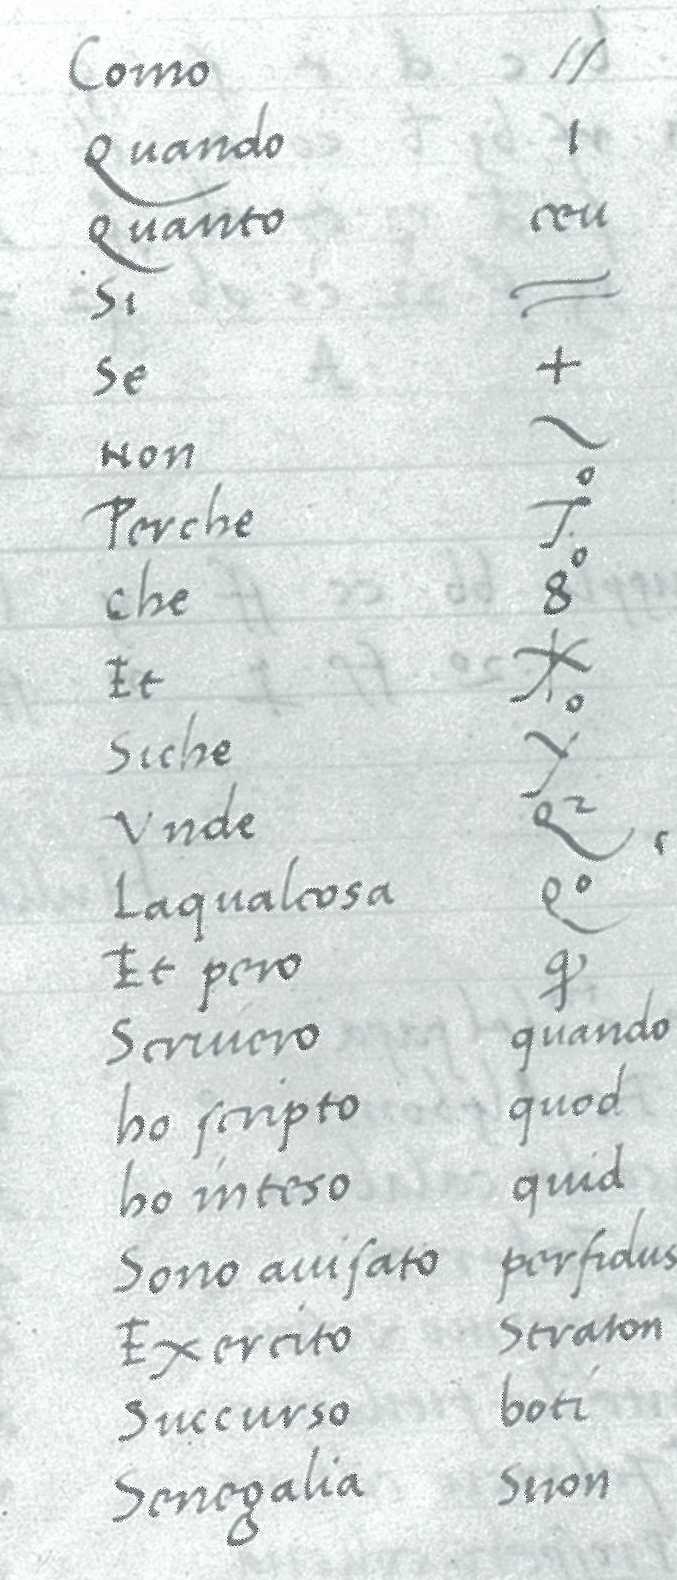 Como //
Quando 1
Quanto ceu
Si
Se +
Non ~
Perche
che 8°
Et
Siche
Vnde
Laqualcosa
Et pero
Scriuero quando
ho scripto quod
ho inteso quid
Sono auisato perfidus
Exercito Straton
Succurso boti
Senegalia Snon